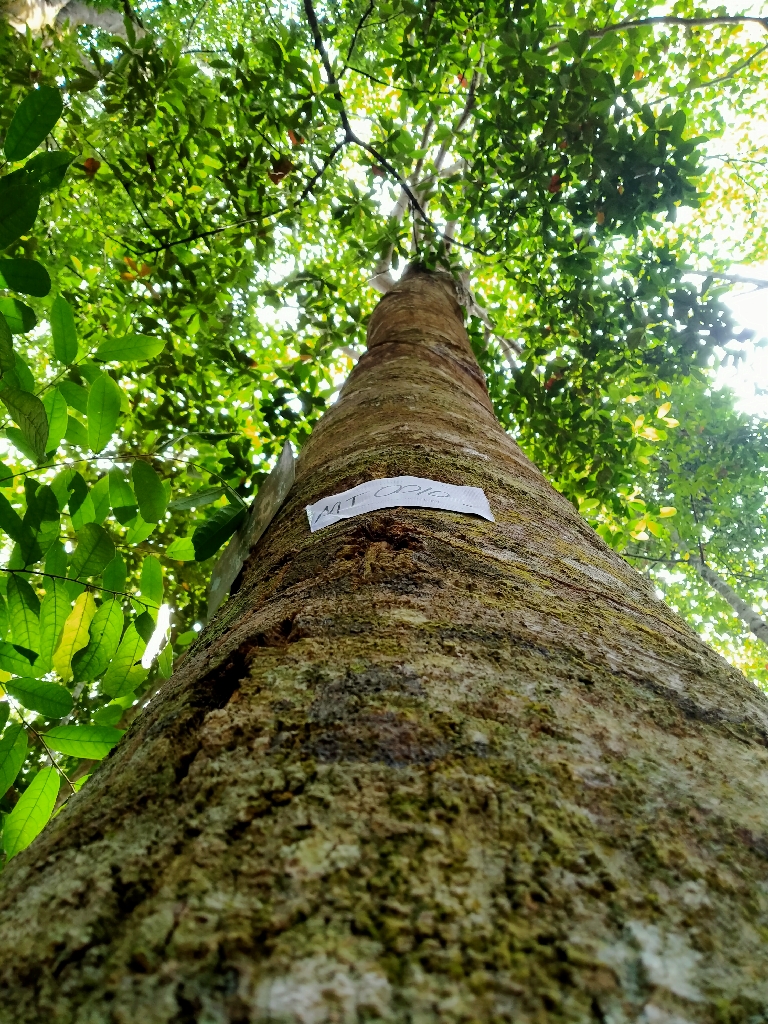 MT 0010